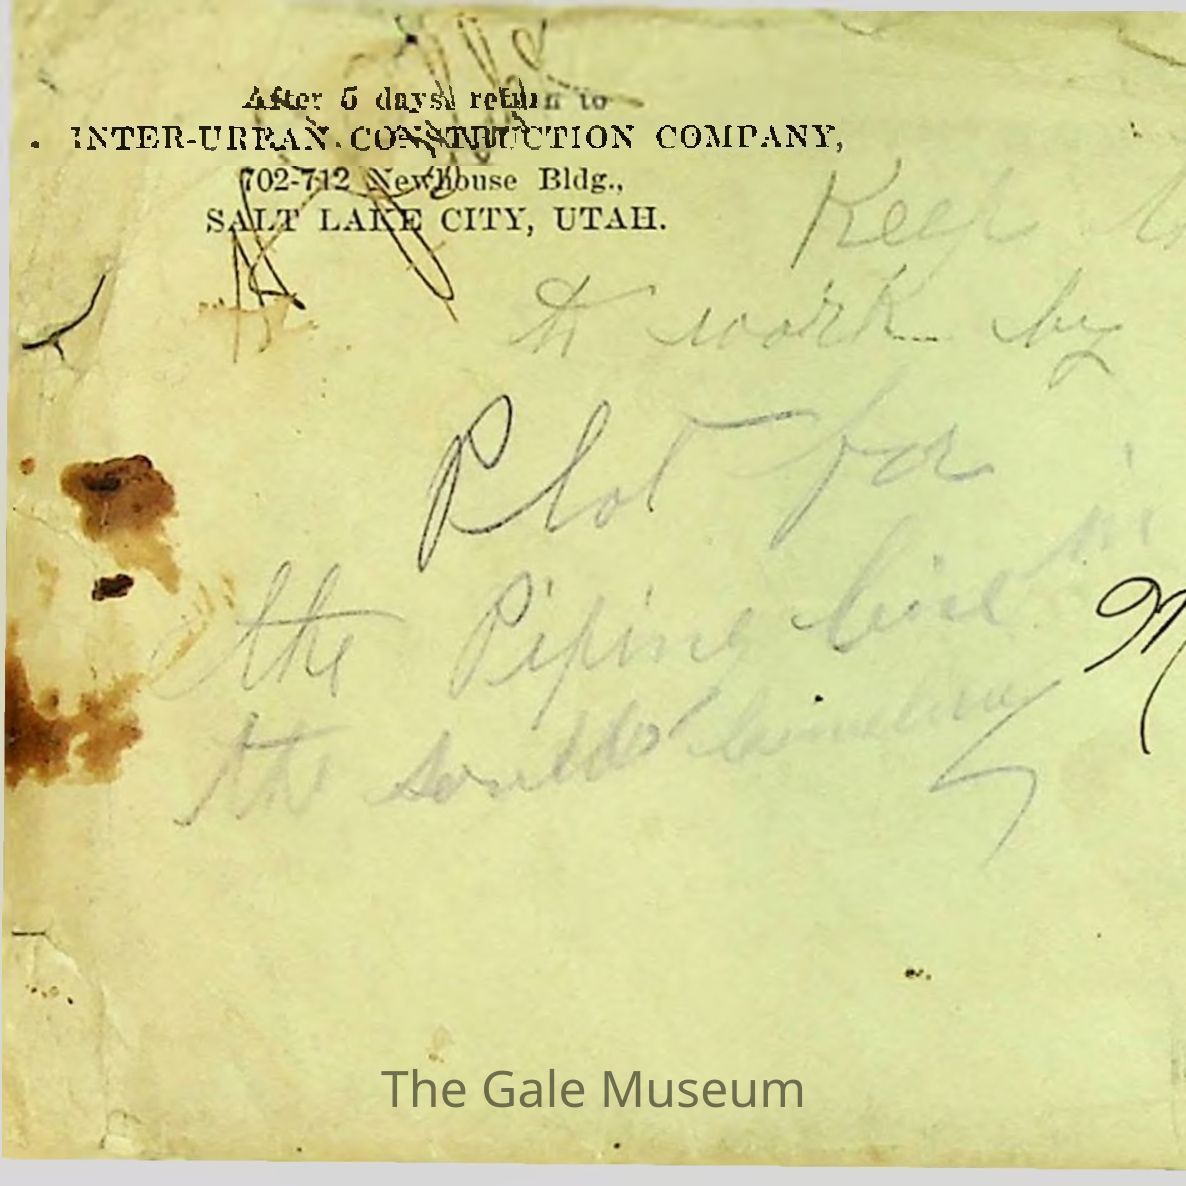 After 5 days return to
INTER-URBAN CONSTRUCTION COMPANY,
702-712 Newhouse Bldg.,
SALT LAKE CITY, UTAH.
Keep
to work by
Plot for
the Piping line in
the
The Gale Museum